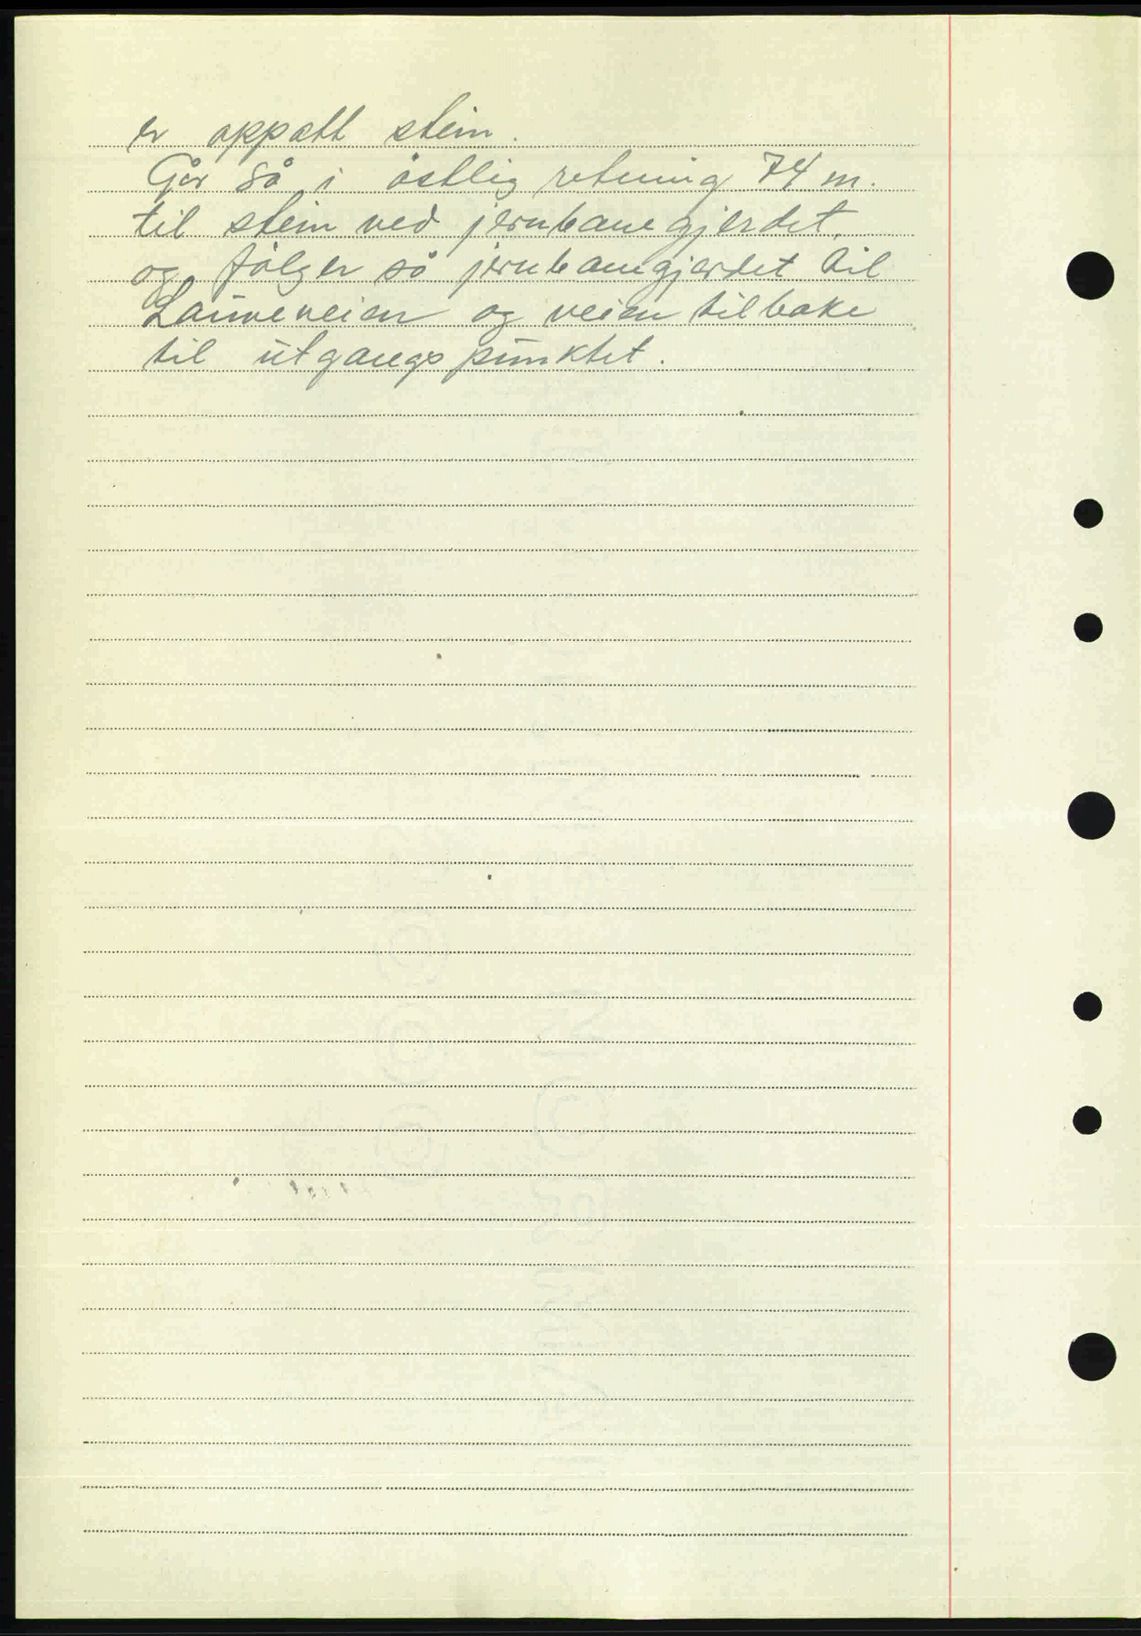 er oppsatt stein.
Går så i östlig retning 74 m.
til stein ved jernbanegjerdet,
og följer så jernbanegjerdet til
Lauveveien og veien tilbake
til utgangspunktet.